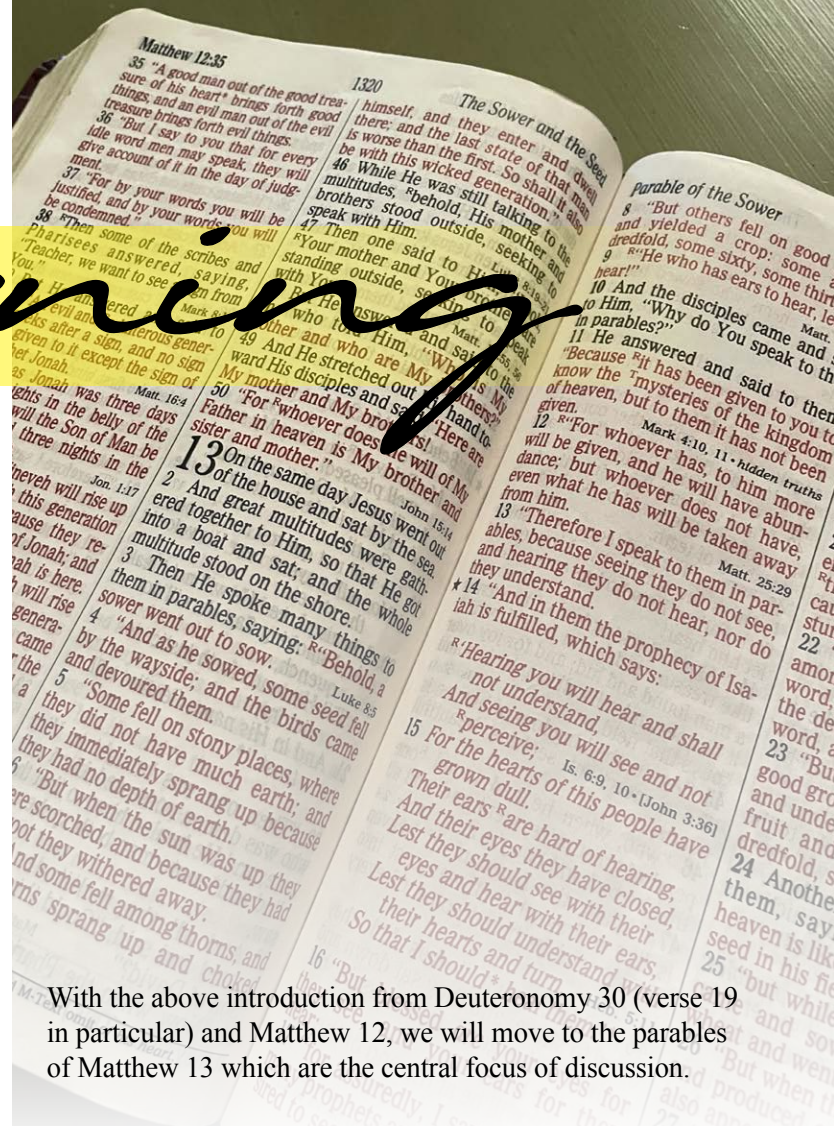 ning
Matthew 12:35
1320
The Sower and the Seed
35 "A good man out of the good trea-
sure of his heart* brings forth good
things, and an evil man out of the evil
treasure brings forth evil things.
36 "But I say to you that for every
idle word men may speak, they will
give account of it in the day of judg-
ment.
37 "For by your words you will be
justified, and by your words you will
be condemned."
38 RThen some of the scribes and
Pharisees answered, saying,
"Teacher, we want to see
from
You."
Mark
evil and
gener-
after a sign, and no sign
given to it except the sign of
Jonah.
Matt. 16:4
Jonah was three days
in the belly of the
will the Son of Man be
three nights in the
Jon. 1:17
will rise up
this generation
they re-
of Jonah; and
is here.
will rise
genera-
came
the
a
himself, and they enter and dwell
there; and the last state of that man
is worse than the first. So shall it also
be with this wicked generation."
46 While He was still talking to the
multitudes, Rbehold, His mother and
brothers stood outside, seeking to
speak with Him.
47 Then one said to
Your mother and Your
are
standing outside,
to speak
with
and said to the
who
Him,
is My
mother and who are My
49 And He stretched out
hand to-
ward His disciples and
"Here are
My mother and My
50 "For Rwhoever does
will of My
Father in heaven is My brother and
sister and mother."
John 15:14
13 On the same day Jesus went out
of the house and sat by the sea.
2 And great multitudes were gath-
ered together to Him, so that He got
into a boat and sat; and the whole
multitude stood on the shore.
3 Then He spoke many things to
them in parables, saying: R"Behold, a
sower went out to sow.
Luke 8:5
4 "And as he sowed, some seed fell
by the wayside; and the birds came
and devoured them.
5 "Some fell on stony places, where
they did not have much earth; and
they immediately sprang up because
they had no depth of earth.
6 "But when the sun was up they
were scorched, and because they had
root they withered away.
And some fell among thorns, and
sprang up and
Parable of the Sower
8 "But others fell on good
and yielded a crop: some
dredfold, some sixty, some
9 R"He who has ears to hear,
hear!"
Matt.
10 And the disciples came and
to Him, "Why do You speak to
in parables?"
11 He answered and said to them
"Because Rit has been given to you to
know the Tmysteries of the kingdom
of heaven, but to them it has not been
given.
Mark 4:10, 11 • hidden truths
12 R"For whoever has, to him more
will be given, and he will have abun-
dance; but whoever does not have,
even what he has will be taken away
from him.
Matt. 25:29
13 "Therefore I speak to them in par-
ables, because seeing they do not see,
and hearing they do not hear, nor do
they understand.
★14 "And in them the prophecy of Isa-
iah is fulfilled, which says:
R'Hearing you will hear and shall
not understand,
And seeing you will see and not
Rperceive;
Is. 6:9, 10 • [John 3:36]
15 For the hearts of this people have
grown dull.
Their ears Rare hard of hearing,
And their eyes they have closed,
Lest they should see with their
eyes and hear with their ears,
Lest they should understand with
their hearts and turn,
So that I should*
16 "But
22
word
the
word,
23 "But
good
and
fruit and
dredfold,
24 Another
them,
heaven is
seed in his
25 "but
With the above introduction from Deuteronomy 30 (verse 19
in particular) and Matthew 12, we will move to the parables
of Matthew 13 which are the central focus of discussion.